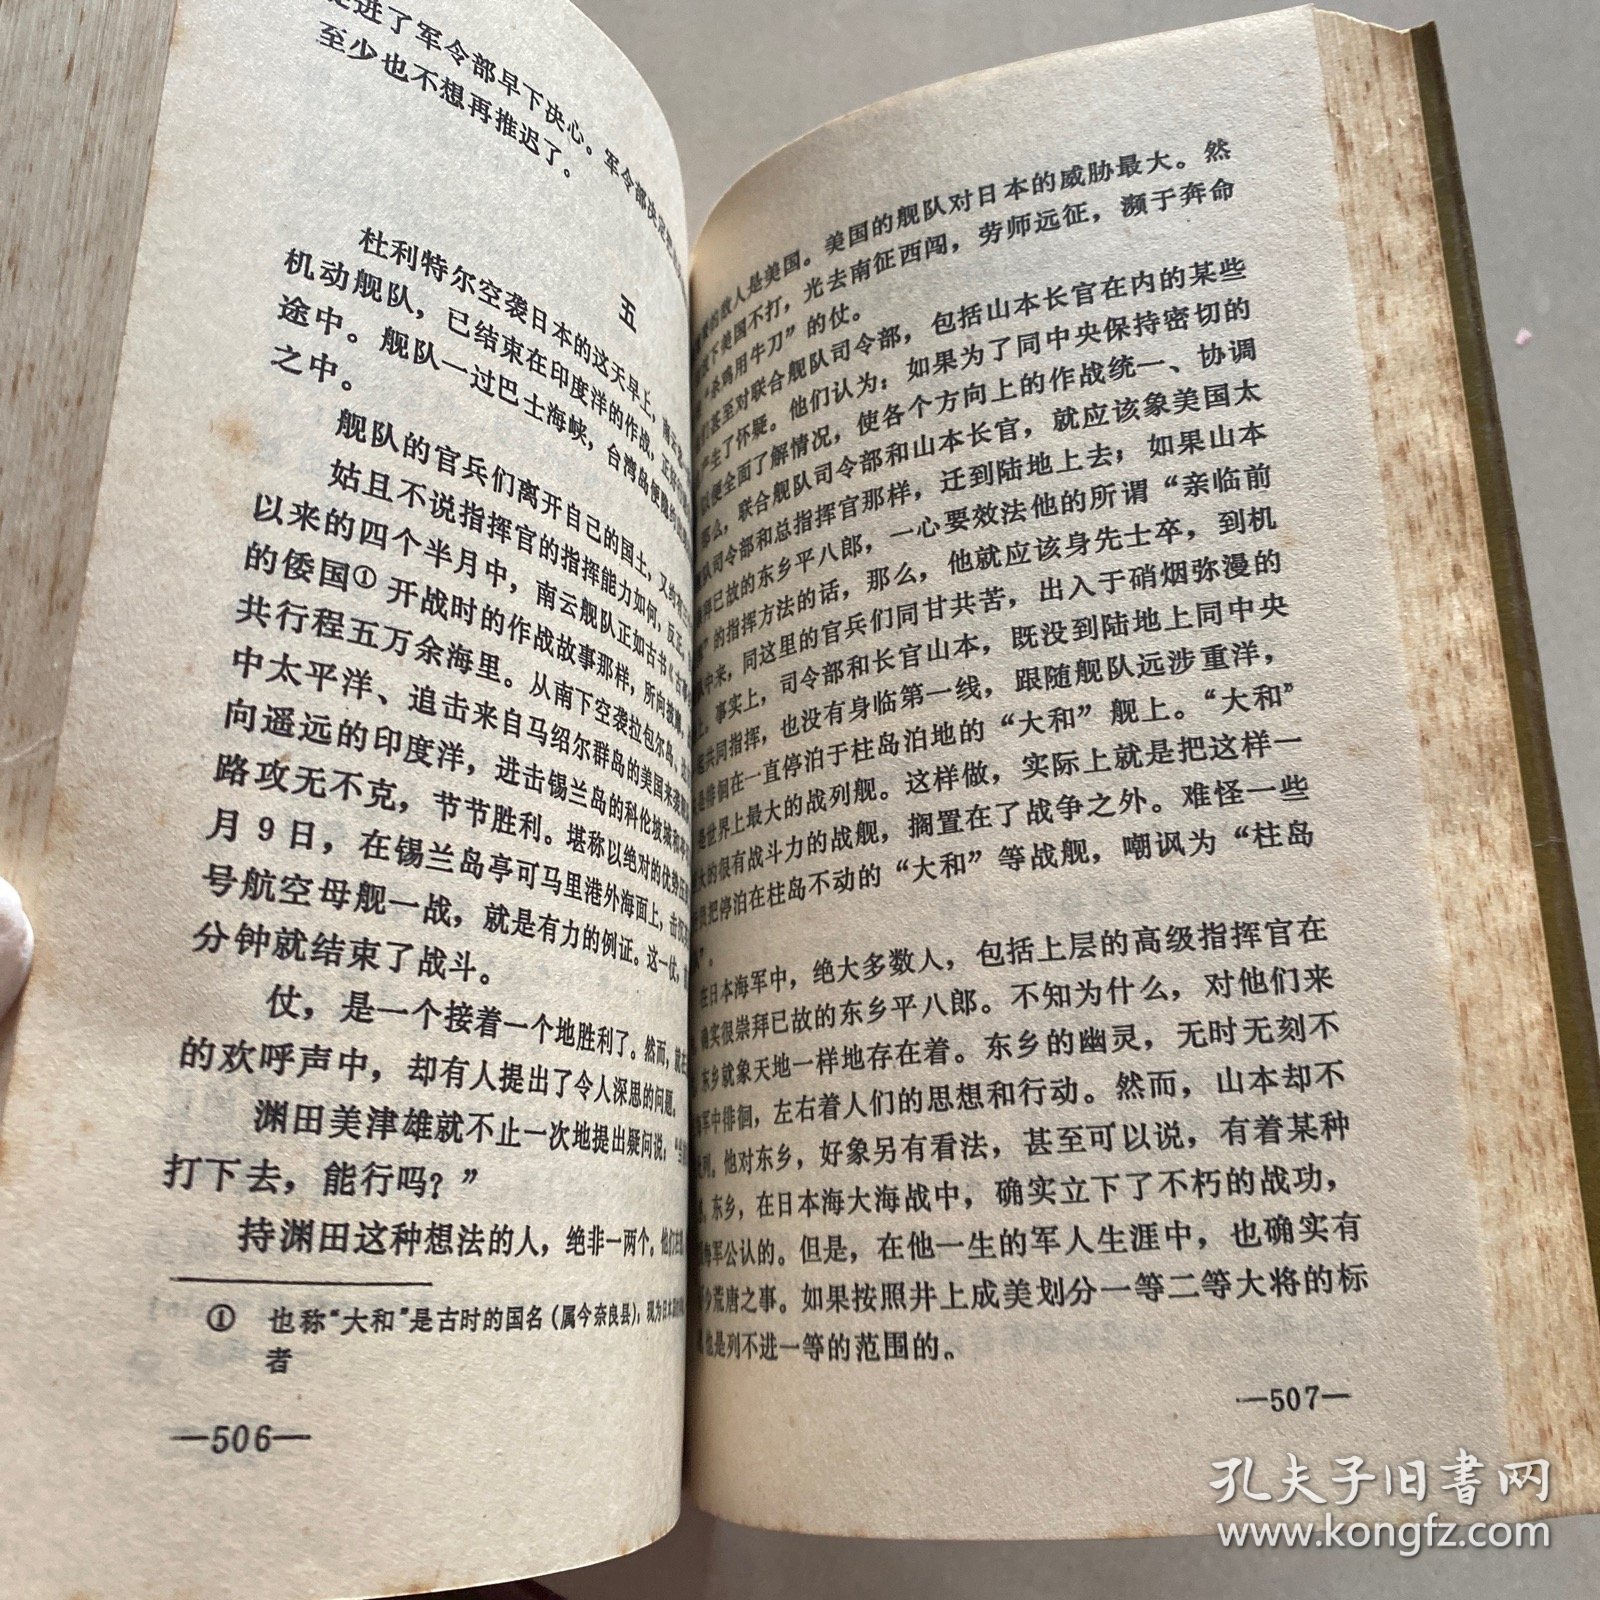 进了军令部早下决心。军令部决定
至少也不想再推迟了。
五
杜利特尔空袭日本的这天早上，南云
机动舰队，已结束在印度洋的作战，正
途中。舰队一过巴士海峡，台湾岛便
之中。
舰队的官兵们离开自己的国土，又
姑且不说指挥官的指挥能力如何，反正，
以来的四个半月中，南云舰队正如古书《古事
的倭国①开战时的作战故事那样，所向披靡，
共行程五万余海里。从南下空袭拉包尔岛，
中太平洋、追击来自马绍尔群岛的美国来袭
向遥远的印度洋，进击锡兰岛的科伦坡城和
路攻无不克，节节胜利。堪称以绝对的优势压
月9日，在锡兰岛亭可马里港外海面上，击
号航空母舰一战，就是有力的例证。这一仗，
分钟就结束了战斗。
仗，是一个接着一个地胜利了。然而，就在
的欢呼声中，却有人提出了令人深思的问题。
渊田美津雄就不止一次地提出疑问说：“
打下去，能行吗？”
持渊田这种想法的人，绝非一两个，他们
① 也称“大和”是古时的国名（属今奈良县），现为日本
者
—506—
的敌人是美国。美国的舰队对日本的威胁最大。然
放下美国不打，光去南征西闯，劳师远征，濒于奔命
“杀鸡用牛刀”的仗。
甚至对联合舰队司令部，包括山本长官在内的某些
产生了怀疑。他们认为：如果为了同中央保持密切的
以便全面了解情况，使各个方向上的作战统一、协调
那么，联合舰队司令部和山本长官，就应该象美国太
队司令部和总指挥官那样，迁到陆地上去；如果山本
拜已故的东乡平八郎，一心要效法他的所谓“亲临前
”的指挥方法的话，那么，他就应该身先士卒，到机
中来，同这里的官兵们同甘共苦，出入于硝烟弥漫的
。事实上，司令部和长官山本，既没到陆地上同中央
共同指挥，也没有身临第一线，跟随舰队远涉重洋，
是徘徊在一直停泊于柱岛泊地的“大和”舰上。“大和”
是世界上最大的战列舰。这样做，实际上就是把这样一
大的很有战斗力的战舰，搁置在了战争之外。难怪一些
把停泊在柱岛不动的“大和”等战舰，嘲讽为“柱岛
”。
在日本海军中，绝大多数人，包括上层的高级指挥官在
确实很崇拜已故的东乡平八郎。不知为什么，对他们来
东乡就象天地一样地存在着。东乡的幽灵，无时无刻不
军中徘徊，左右着人们的思想和行动。然而，山本却不
列。他对东乡，好象另有看法，甚至可以说，有着某种
。东乡，在日本海大海战中，确实立下了不朽的战功，
海军公认的。但是，在他一生的军人生涯中，也确实有
少荒唐之事。如果按照井上成美划分一等二等大将的标
他是列不进一等的范围的。
—507—
孔夫子旧书网
www.kongfz.com